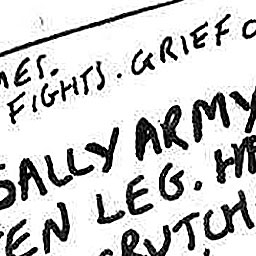 MES.
FIGHTS. GRIEF
SALLY ARMY
EN LEG. HE
CRUTCH